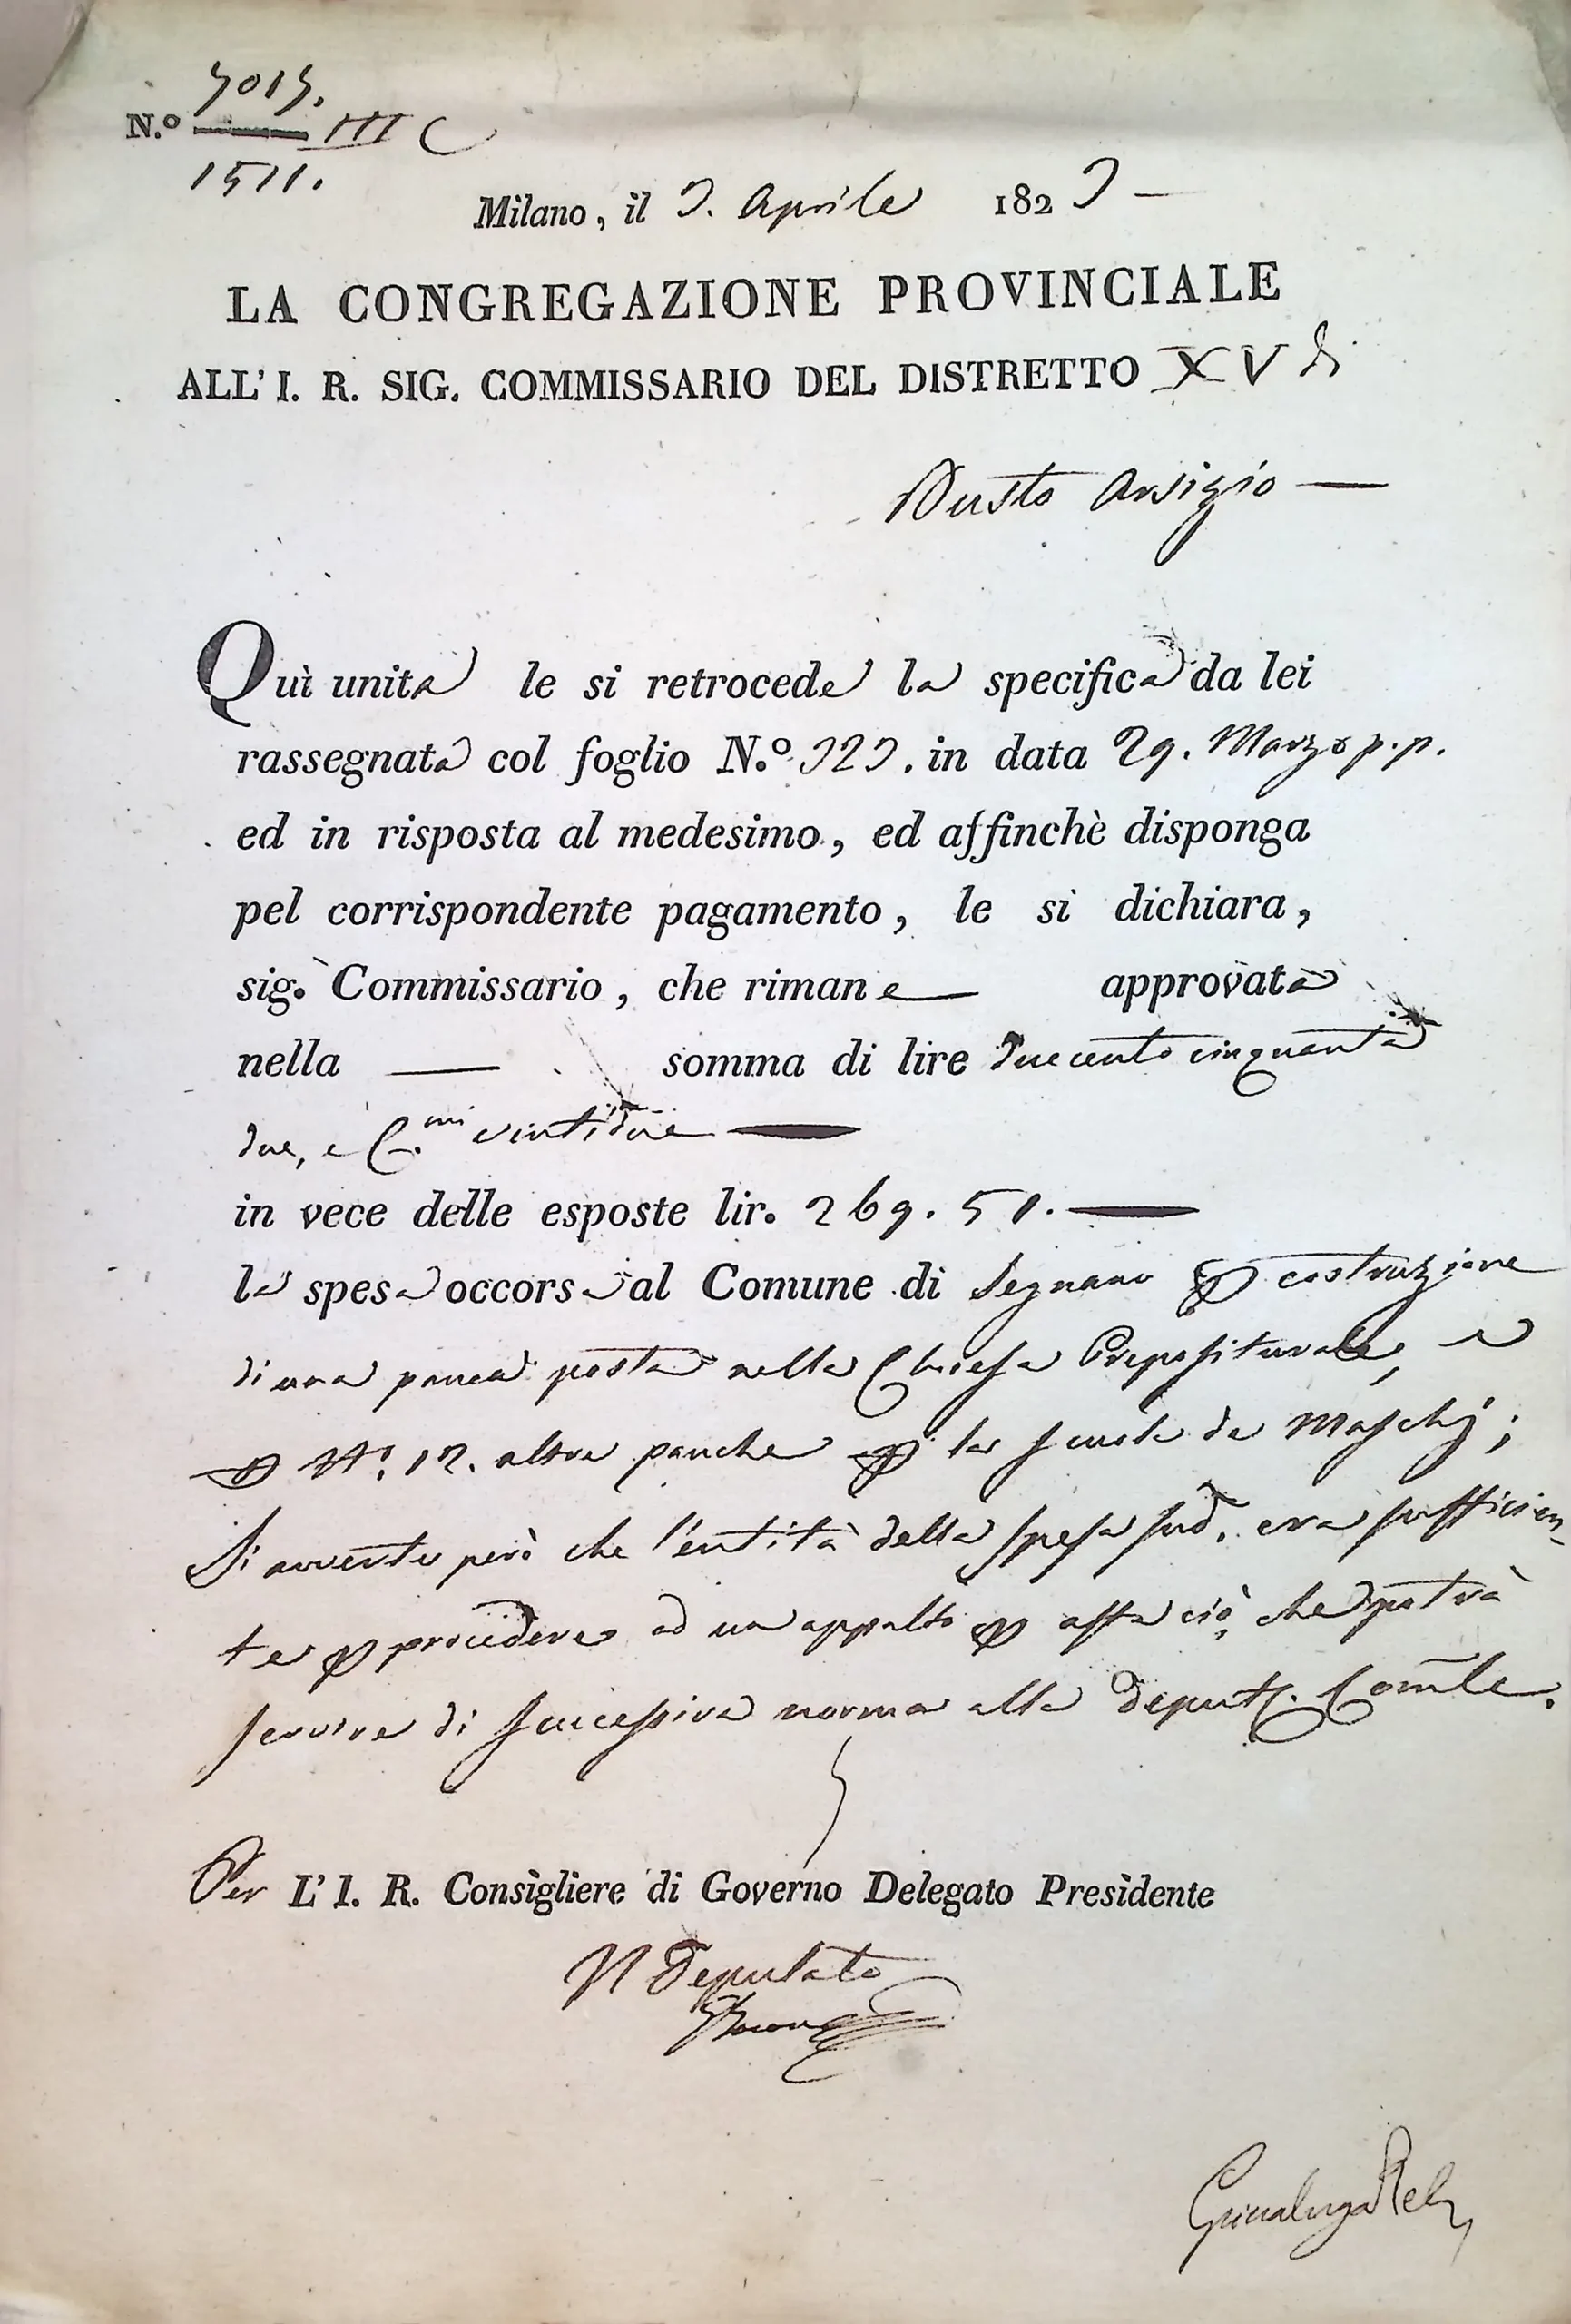 5015.
N.º III C
1511.
Milano, il 3. Aprile 1823 —
LA CONGREGAZIONE PROVINCIALE
ALL' I. R. SIG. COMMISSARIO DEL DISTRETTO XV di
Busto Arsizio —
Quì unita le si retrocede la specifica da lei
rassegnata col foglio N.º 323. in data 29. Marzo p.p.
ed in risposta al medesimo, ed affinchè disponga
pel corrispondente pagamento, le si dichiara,
sig. Commissario, che rimane — approvata
nella — somma di lire duecento cinquanta
due, e C.mi ventidue —
in vece delle esposte lir. 269. 51. —
la spesa occorsa al Comune di Legnano per costruzione
di una panca posta nella Chiesa Prepositurale, e
per N.º 12. altre panche per la scuola de Maschj;
Si avverte però che l'entità della spesa sud.a era sufficien-
te per procedere ad un appalto per asta ciò, che potrà
servire di successiva norma alla Deput.e Com̃le.
Per L' I. R. Consigliere di Governo Delegato Presidente
Il Deputato